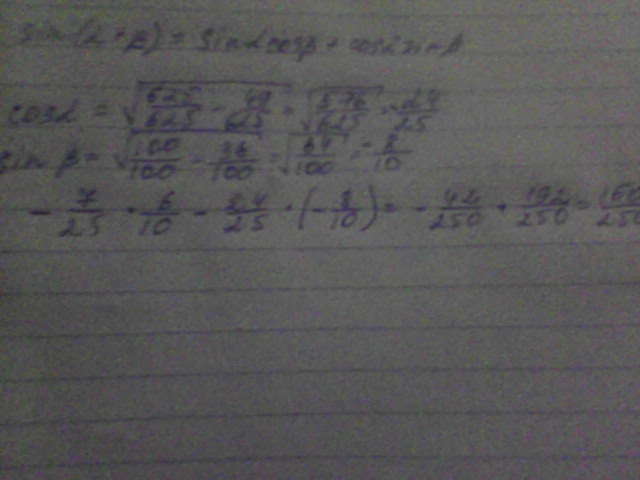 sin(α+β) = sinαcosβ + cosαsinβ
cosα = √(625/625 - 49/625) = √(576/625) = 24/25
sin β = √(100/100 - 36/100) = √(64/100) = -8/10
- 7/25 · 6/10 - 24/25 · (- 8/10) = - 42/250 + 192/250 =